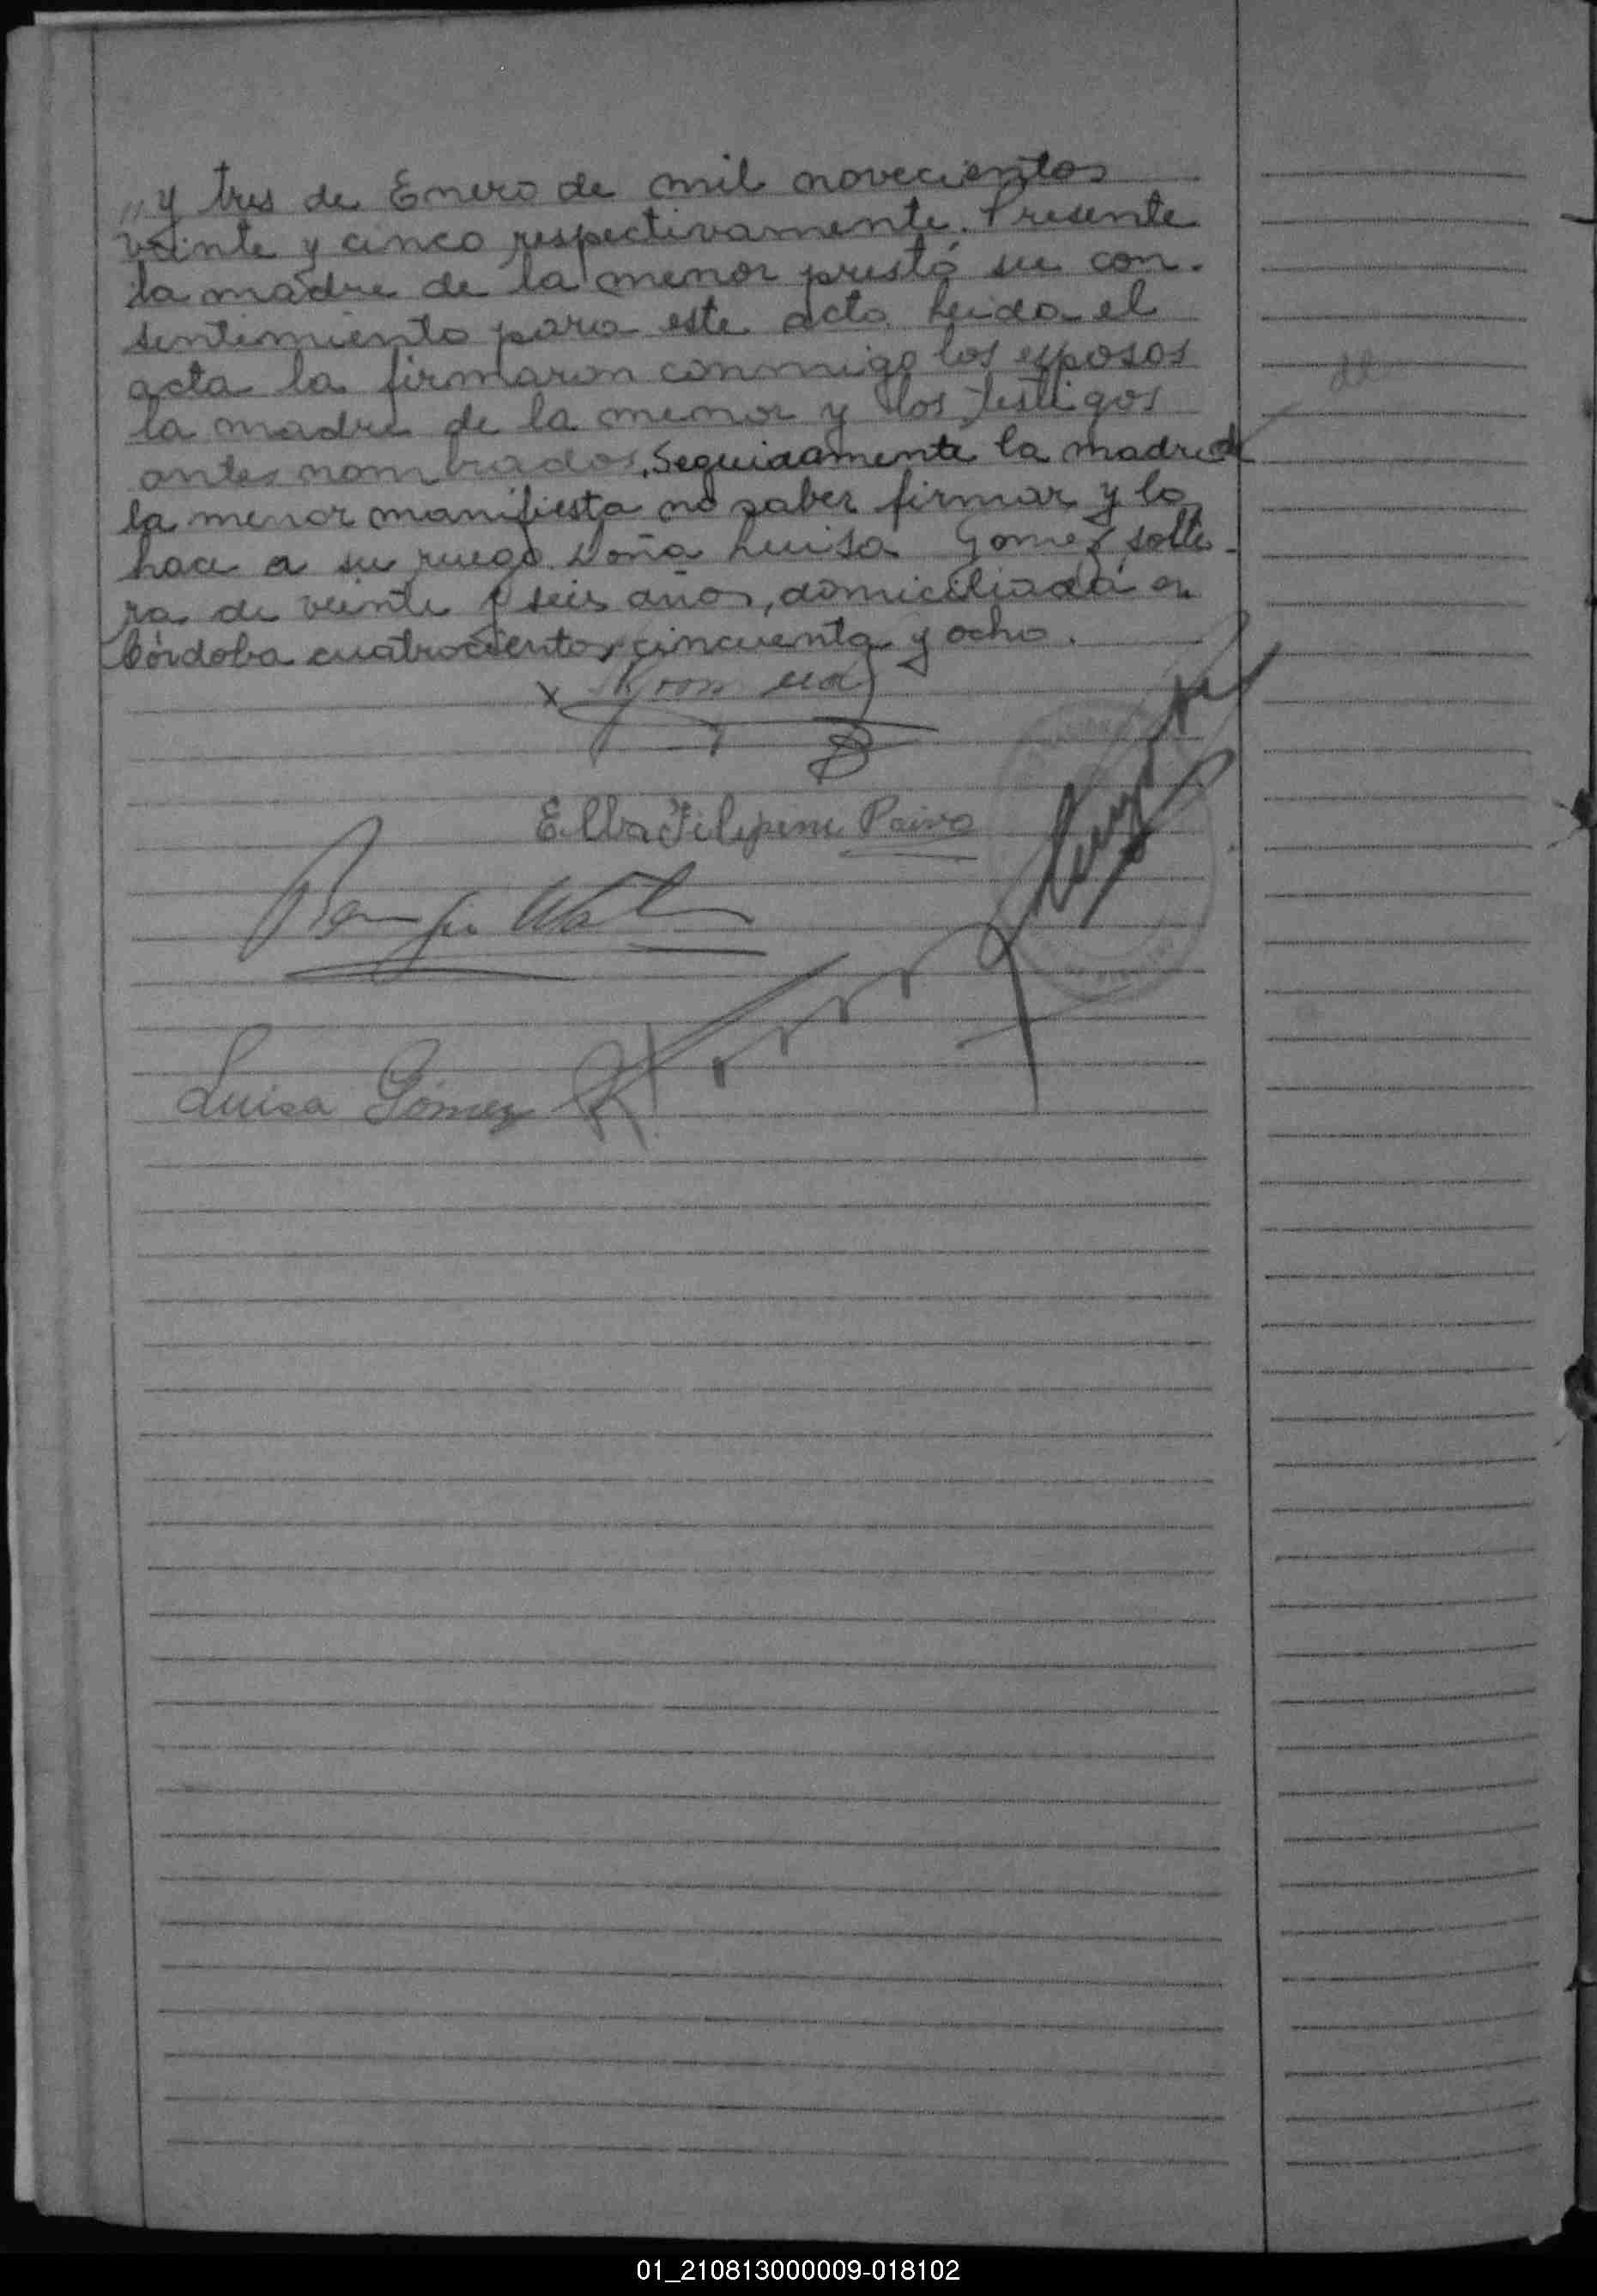 „y tres de Enero de mil novecientos
veinte y cinco respectivamente. Presente
la madre de la menor prestó su con-
sentimiento para este acto. Leida el
acta la firmaron conmigo los esposos
la madre de la menor y los testigos
antes nombrados. Seguidamente la madre de
la menor manifiesta no saber firmar y lo
hace a su ruego Doña Luisa Gomez solte-
ra de veinte y seis años, domiciliada en
Córdoba cuatrocientos cincuenta y ocho.
x
Elba Filipini Paiva
Luisa Gómez
01_210813000009-018102